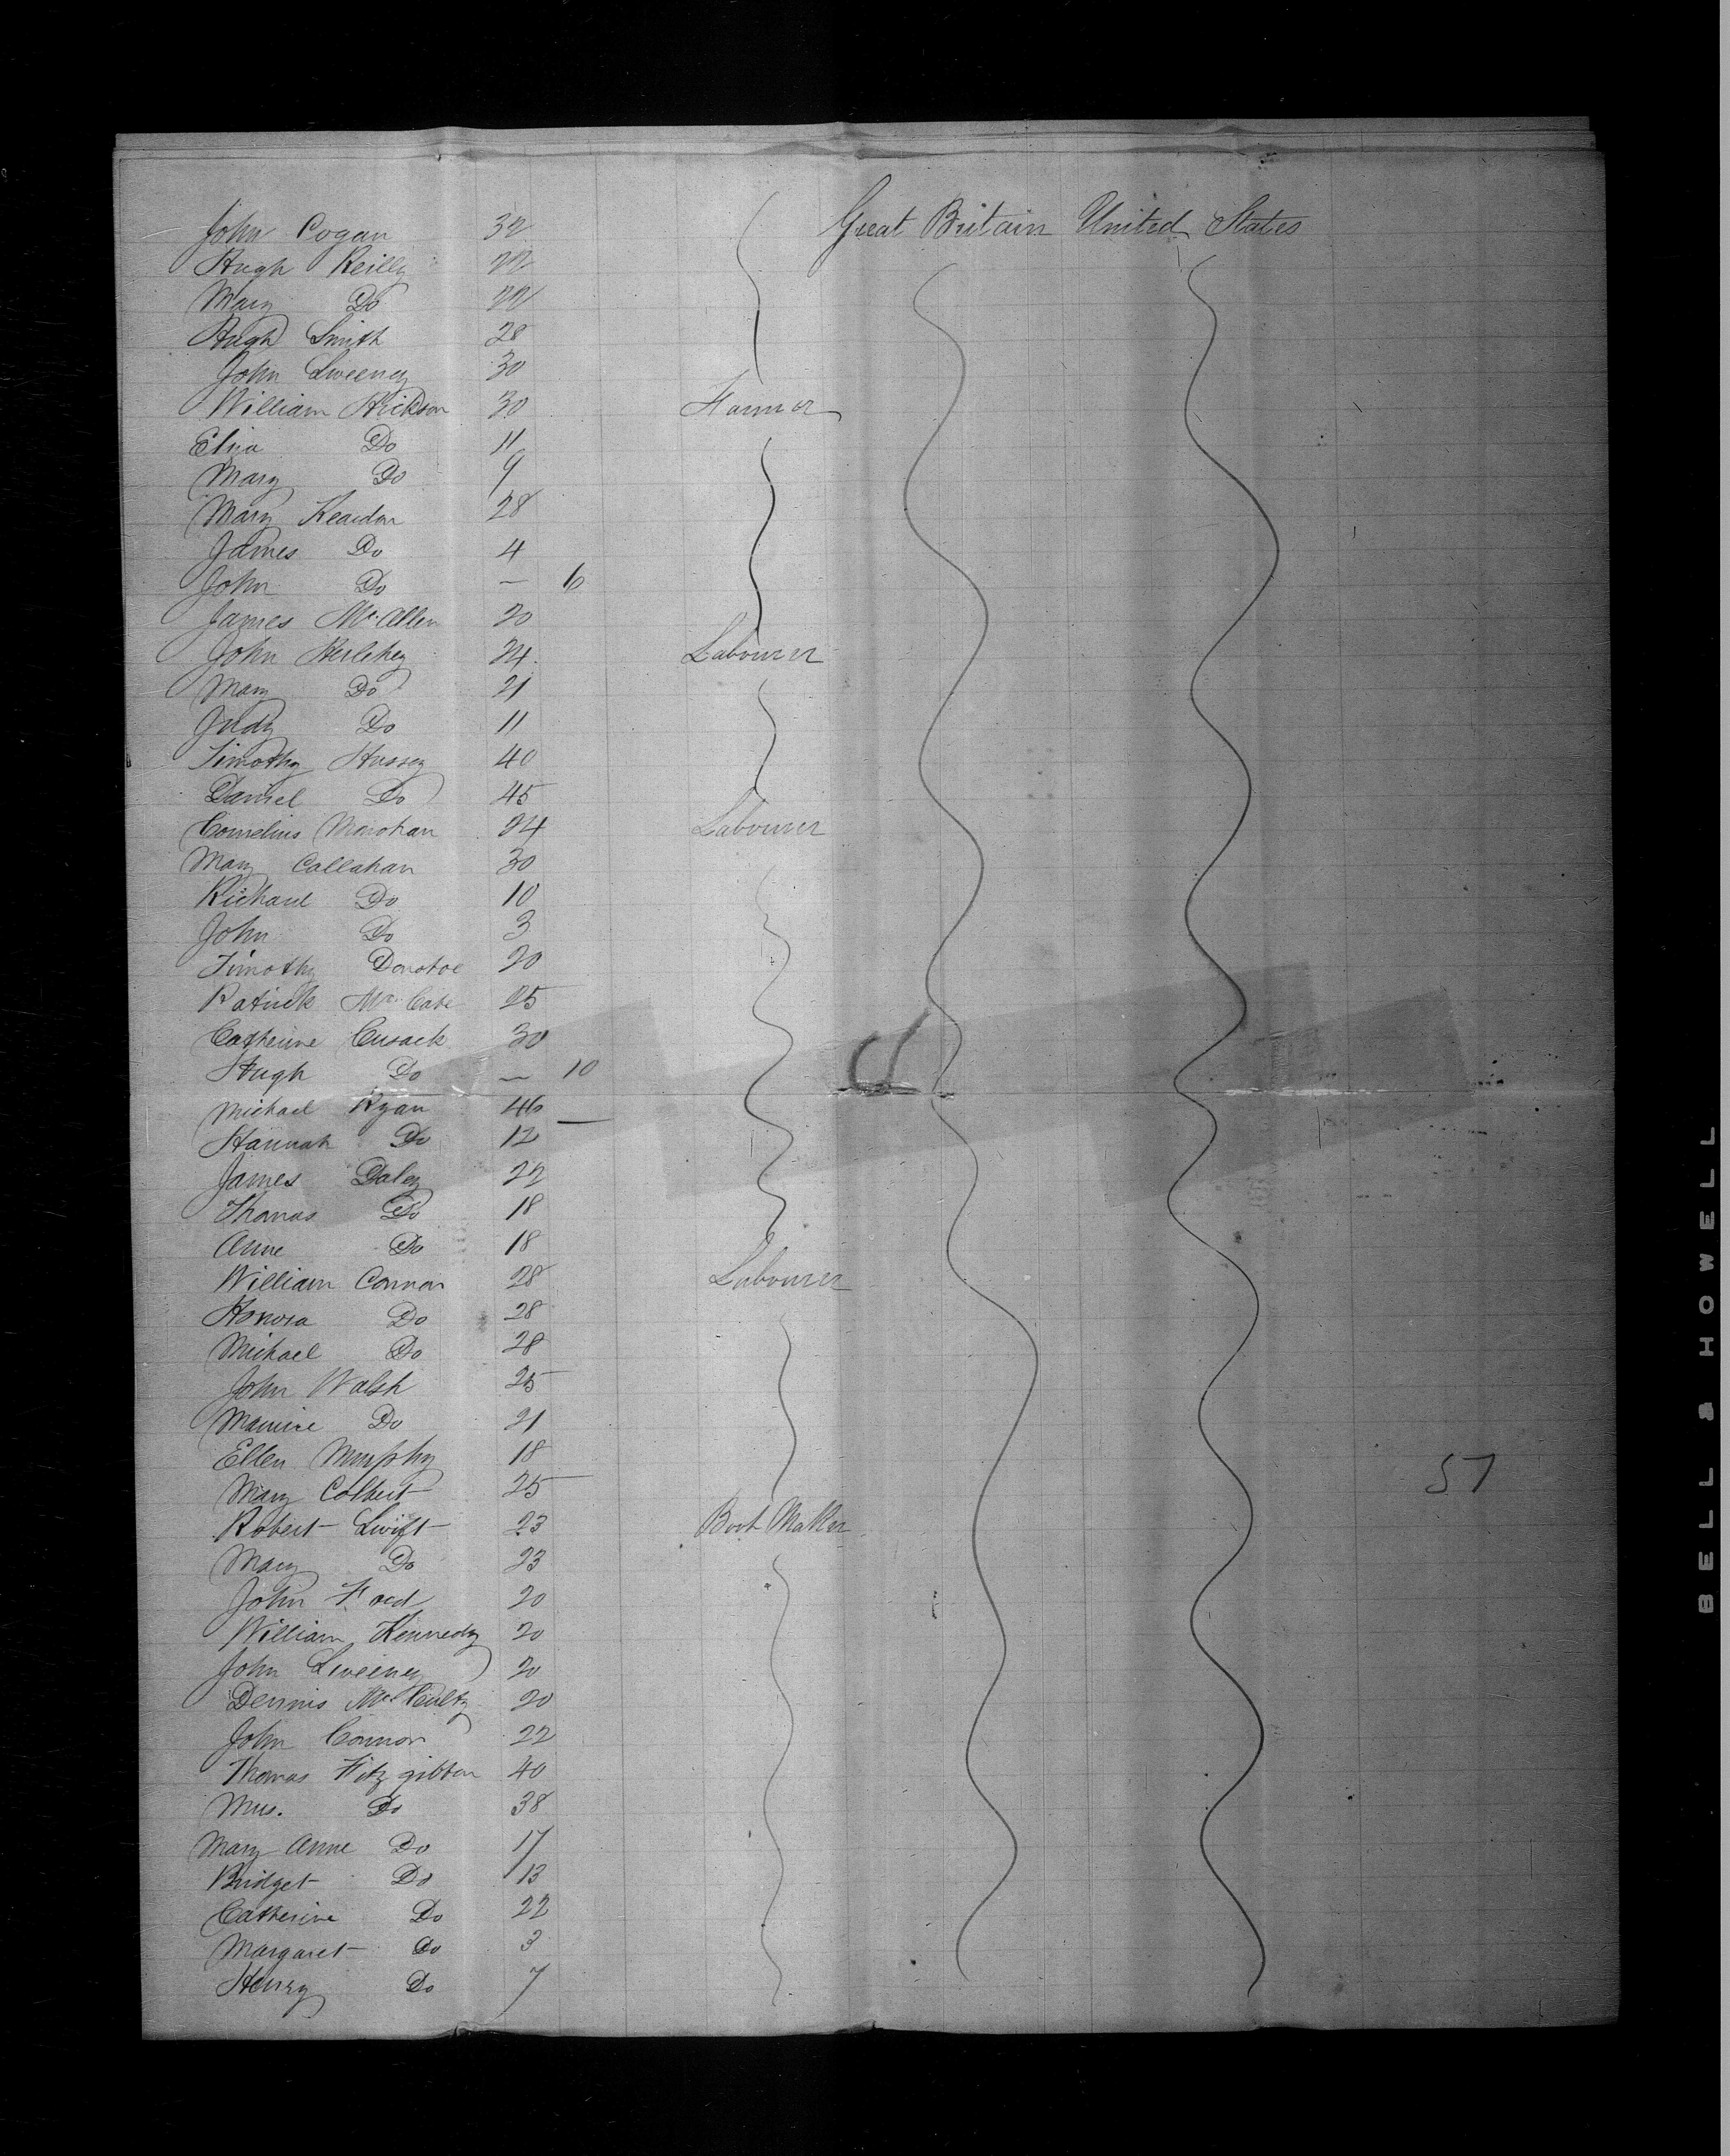 John Cogan 32 Great Britain United States
Hugh Reilly 22
Mary Do 22
Hugh Smith 28
John Sweeney 30
William Hickson 30 Farmer
Eliza Do 11
Mary Do 9
Mary Reardon 28
James Do 4
John Do — 6
James McAllen 20
John Herlehey 24 Labourer
Mary Do 21
Judy Do 11
Timothy Hussey 40
Daniel Do 45
Cornelius Monohan 24 Labourer
Mary Callahan 30
Richard Do 10
John Do 3
Timothy Donohoe 20
Patrick McCabe 25
Catherine Cusack 30
Hugh Do — 10
Michael Ryan 46 —
Hannah Do 12
James Daley 22
Thomas Do 18
Anne Do 18
William Connor 28 Labourer
Honora Do 28
Michael Do 28
John Walsh 25
Maurice Do 21
Ellen Murphy 18
Mary Colbert 25
Robert Swift 23 Boot Maker
Mary Do 23
John Ford 20
William Kennedy 20
John Sweeney 20
Dennis 20
John Connor 22
Thomas Fitzgibbon 40
Mrs. Do 38
Mary Anne Do 17
Bridget Do 13
Catherine Do 22
Margaret Do 3
Henry Do 7
57
BELL & HOWELL